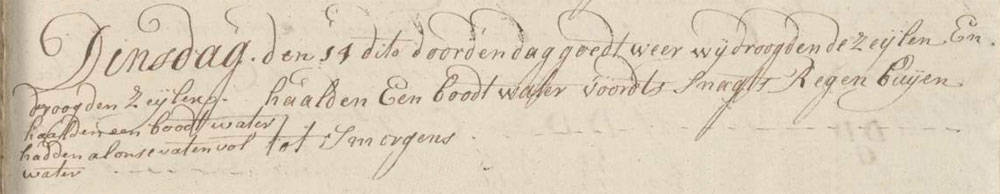 Dinsdag. den 14 dito door den dag goedt weer wij droogden de Zeylen En
haalden Een boodt water voordts Snagts Regen buijen
tot Smorgens
droogden Zeylen
haalden een boodt water
hadden al onse vaten vol
water